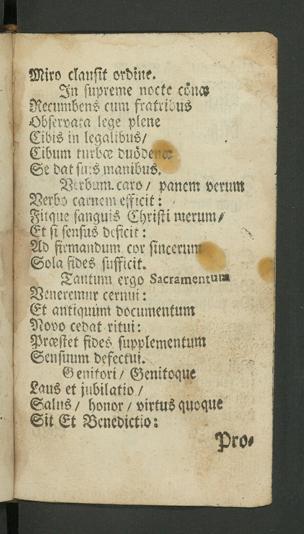 Miro clausit ordine.
In supreme nocte cœnæ
Recumbens cum fratribus
Observata lege plene
Cibis in legalibus/
Cibum turbæ duodenæ
Se dat suis manibus.
Verbum caro/ panem verum
Verbo carnem efficit:
Fitque sanguis Christi merum/
Et si sensus deficit:
Ad firmandum cor sincerum
Sola fides sufficit.
Tantum ergo Sacramentum
Veneremur cernui:
Et antiquum documentum
Novo cedat ritui:
Præstet fides supplementum
Sensuum defectui.
Genitori/ Genitoque
Laus et jubilatio/
Salus/ honor/ virtus quoque
Sit Et Benedictio:
Pro-